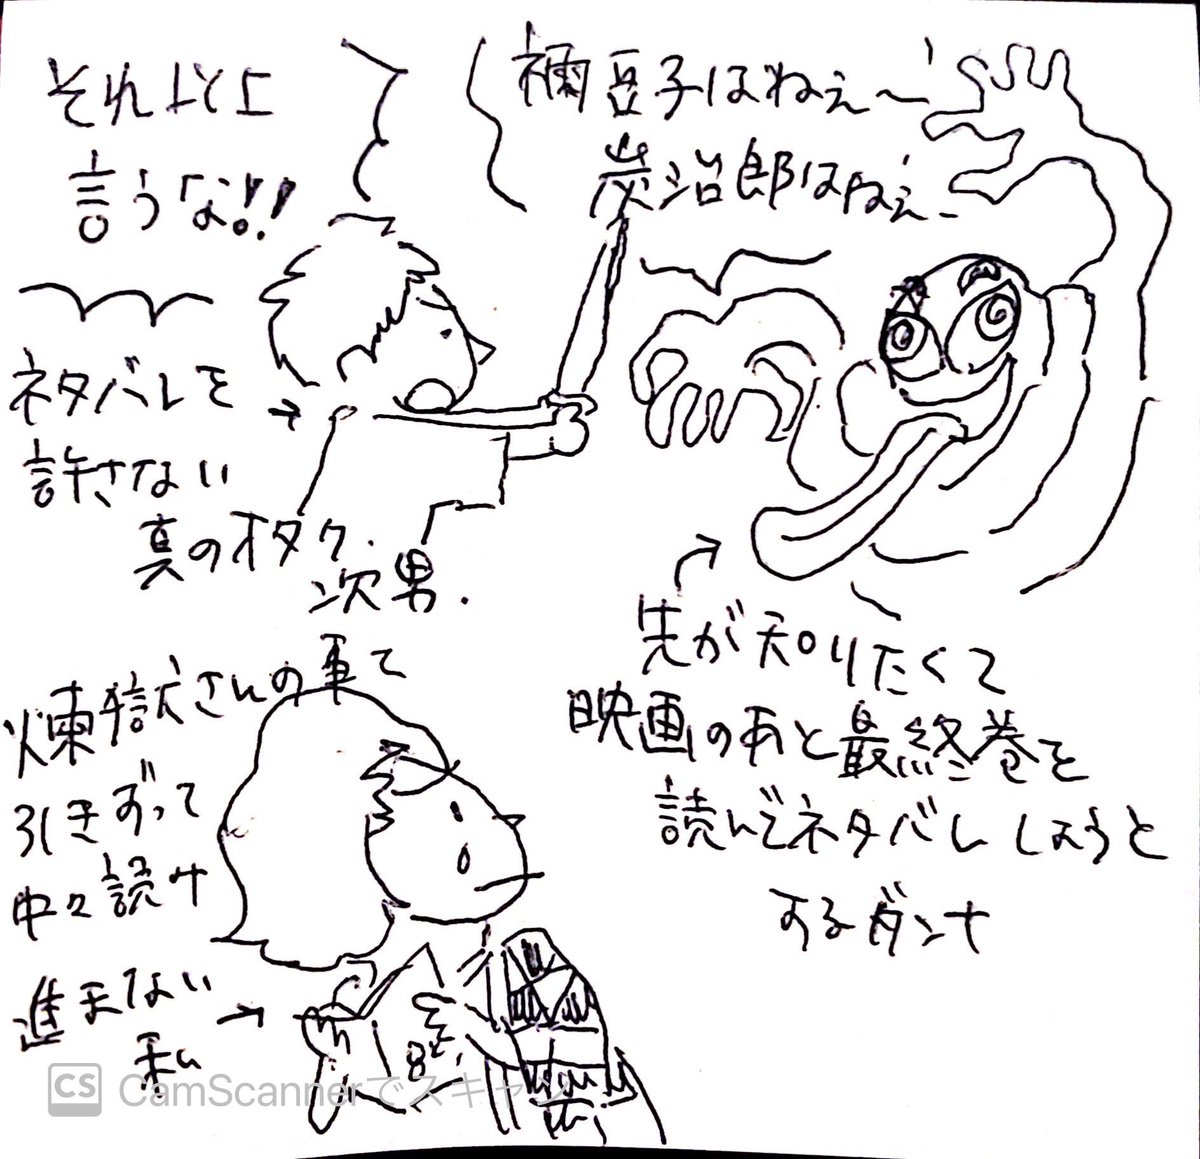 禰豆子はねぇ〜
炭治郎はねぇ〜
それ以上
言うな!!
ネタバレを
許さない
真のオタク
次男.
先が知りたくて
映画のあと最終巻を
読んでネタバレしようと
するダンナ
煉獄さんの事で
引きずって
中々読み
進まない
私
8
CS CamScannerでスキャン